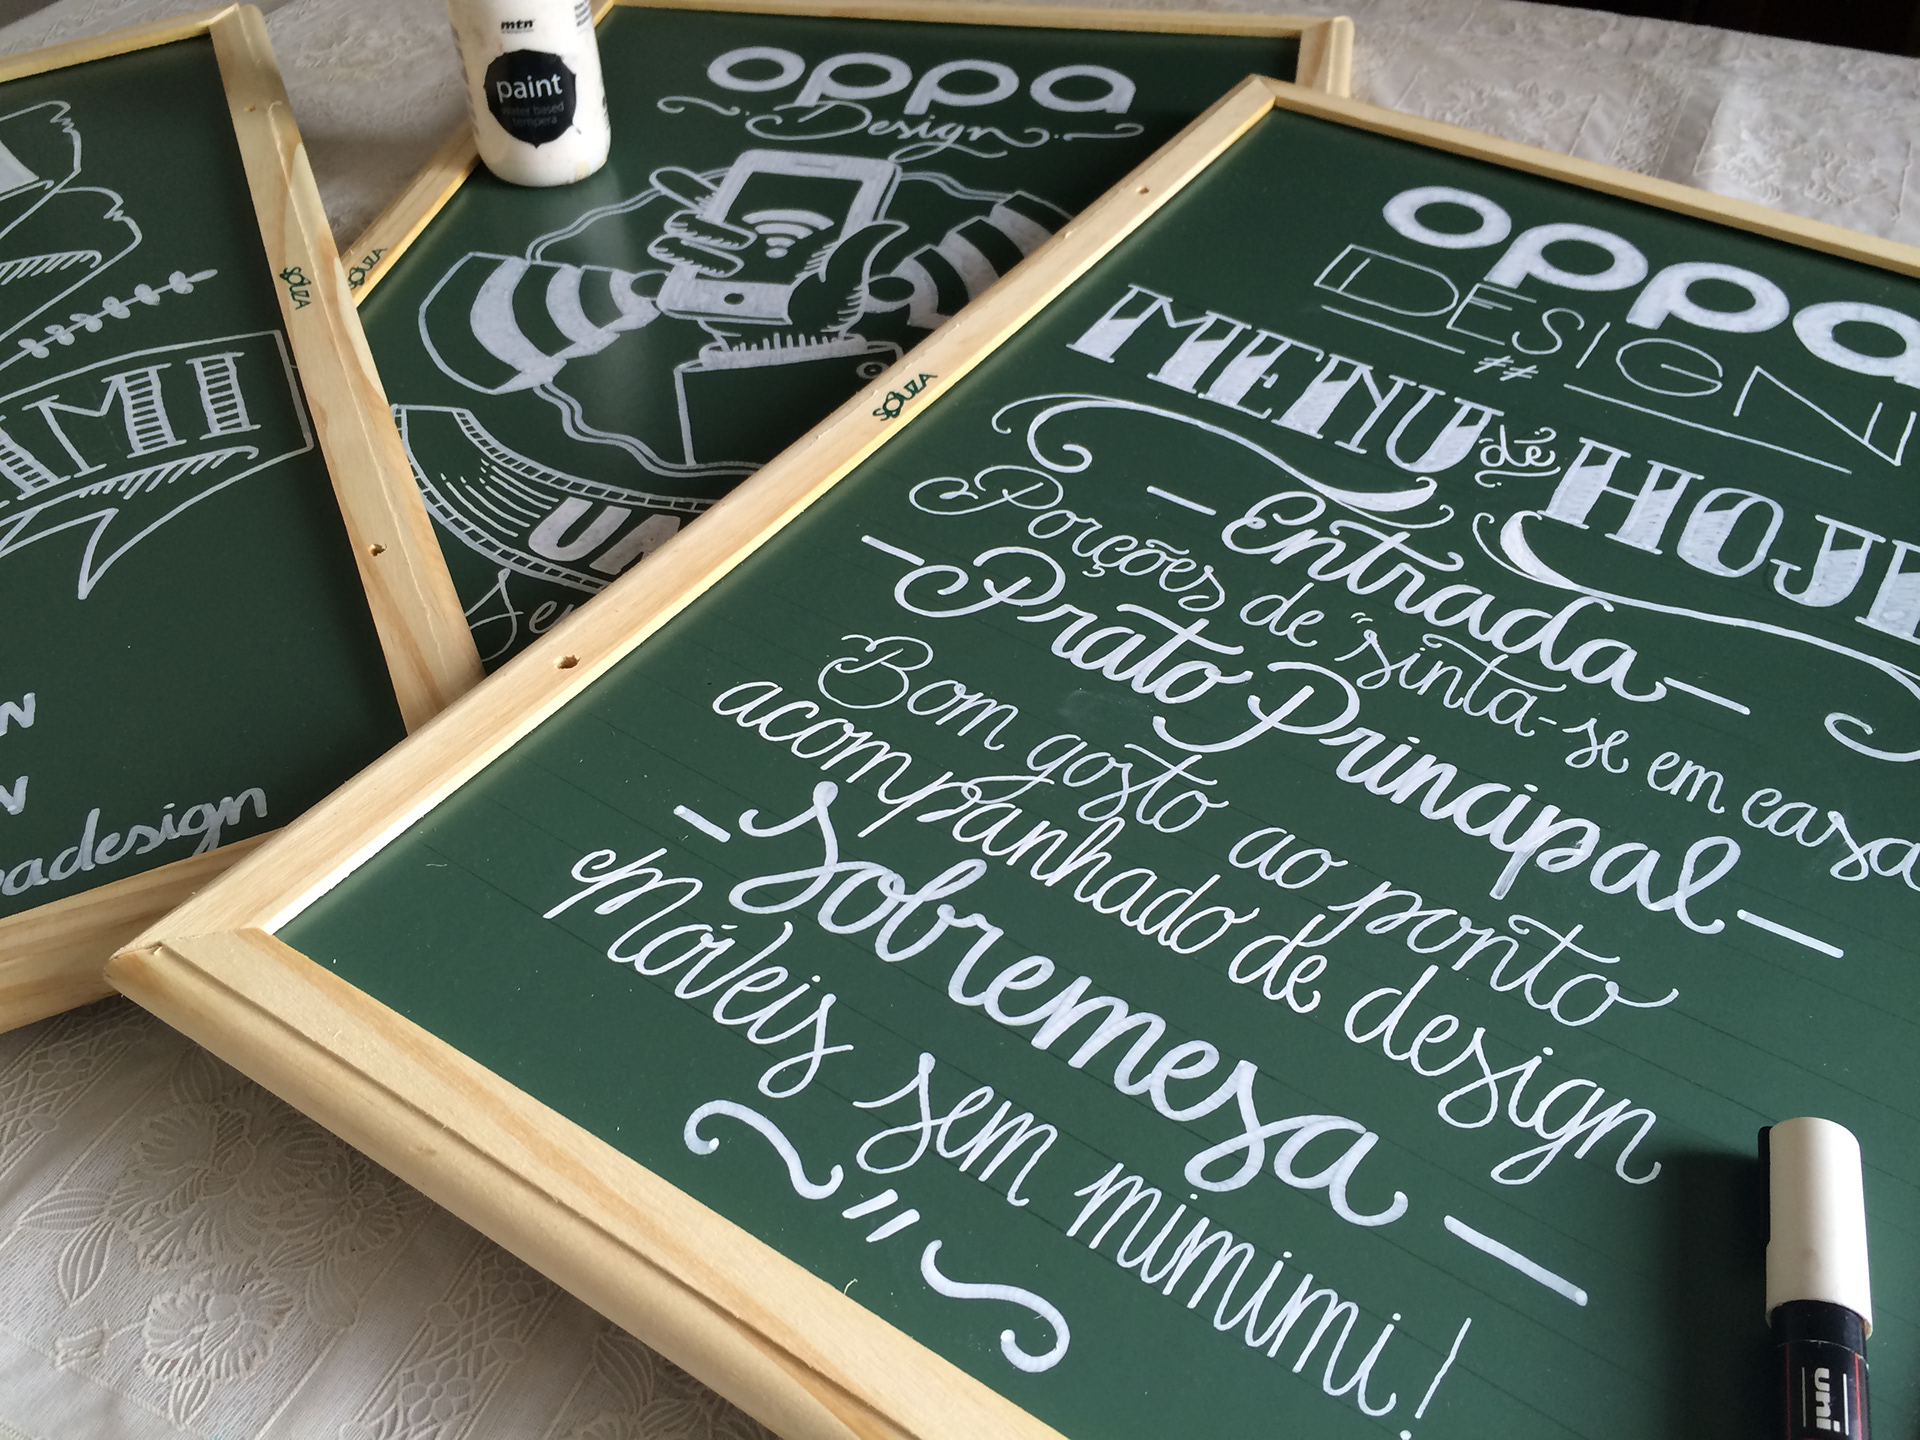 mtn
paint
water based
tempera
oppa
Design
SOUZA
SOUZA
SOUZA
oppa
DESIGN
MENU de HOJE
- Entrada -
Porções de "sinta-se em casa
- Prato Principal -
Bom gosto ao ponto
acompanhado de design
- Sobremesa -
Móveis sem mimimi!
uni